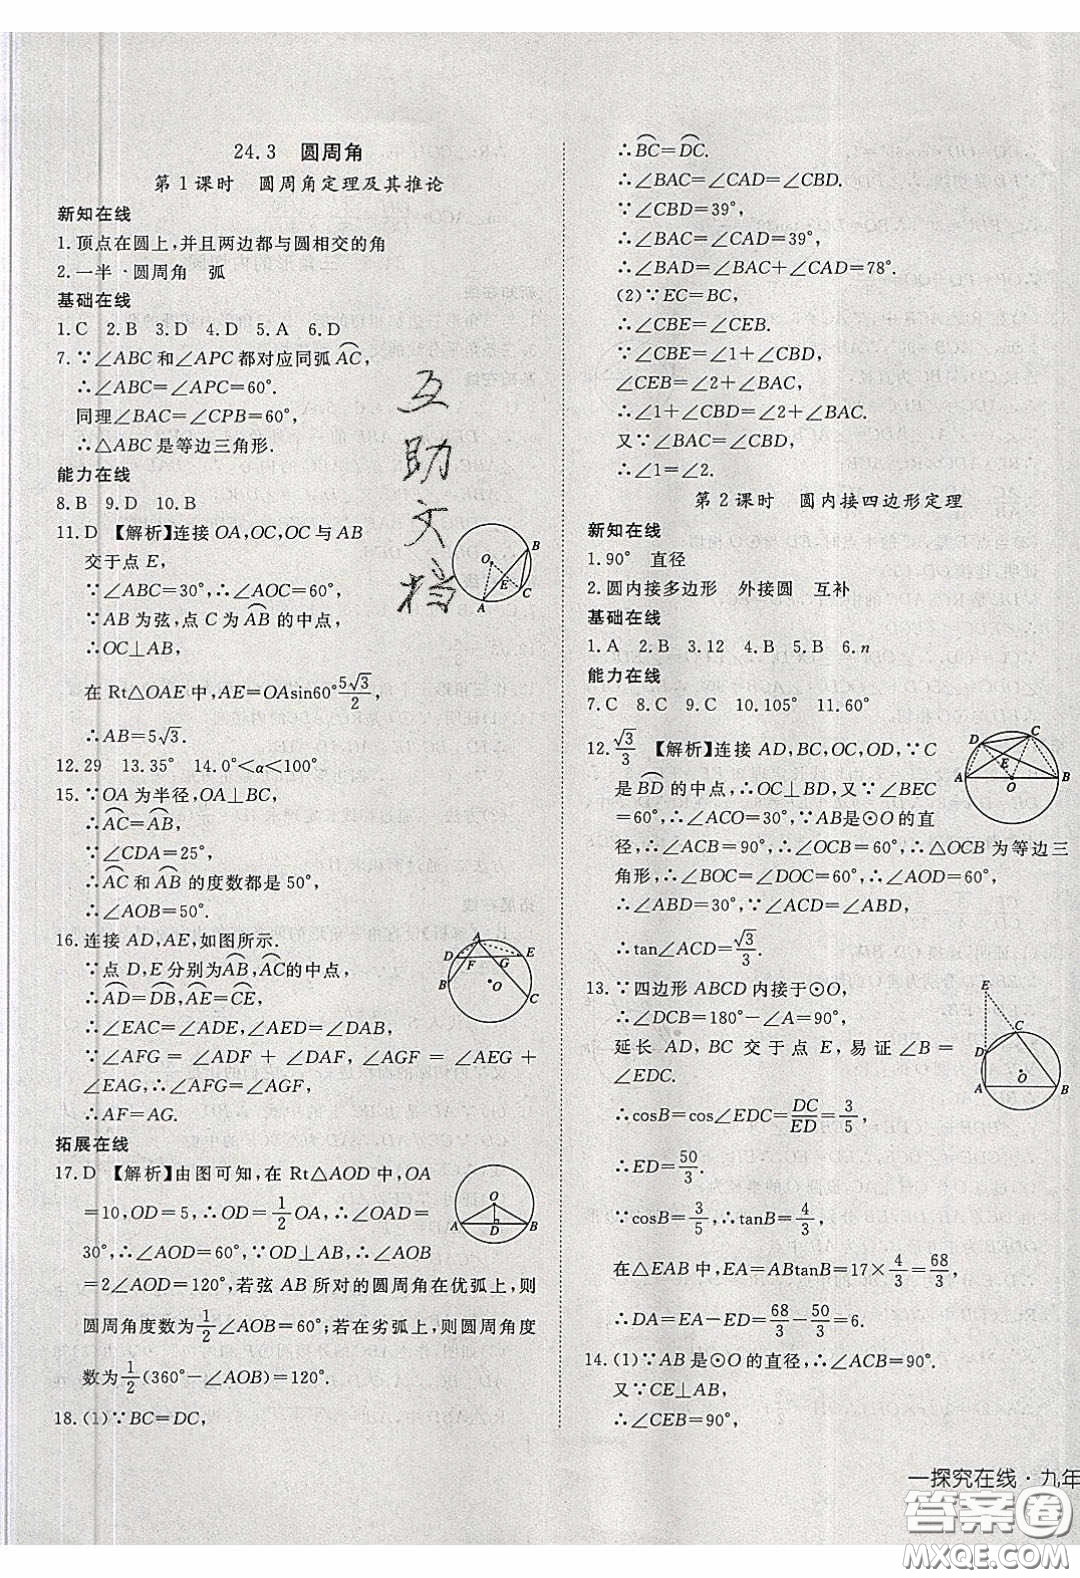 24.3 圆周角
第1课时 圆周角定理及其推论
新知在线
1.顶点在圆上,并且两边都与圆相交的角
2.一半·圆周角 弧
基础在线
1.C 2.B 3.D 4.D 5.A 6.D
7.∵∠ABC和∠APC都对应同弧AC,
∴∠ABC=∠APC=60°.
同理∠BAC=∠CPB=60°,
∴△ABC是等边三角形.
能力在线
8.B 9.D 10.B
11.D 【解析】连接OA,OC,OC与AB
交于点E,
∵∠ABC=30°,∴∠AOC=60°,
∵AB为弦,点C为AB的中点,
∴OC⊥AB,
在Rt△OAE中,AE=OAsin60°5√3/2,
∴AB=5√3.
12.29 13.35° 14.0°<α<100°
15.∵OA为半径,OA⊥BC,
∴AC=AB,
∵∠CDA=25°,
∴AC和AB的度数都是50°,
∴∠AOB=50°.
16.连接AD,AE,如图所示.
∵点D,E分别为AB,AC的中点,
∴AD=DB,AE=CE,
∴∠EAC=∠ADE,∠AED=∠DAB,
∵∠AFG=∠ADF+∠DAF,∠AGF=∠AEG+
∠EAG,∴∠AFG=∠AGF,
∴AF=AG.
拓展在线
17.D 【解析】由图可知,在Rt△AOD中,OA
=10,OD=5,∴OD=1/2OA,∴∠OAD=
30°,∴∠AOD=60°,∵OD⊥AB,∴∠AOB
=2∠AOD=120°,若弦AB所对的圆周角在优弧上,则
圆周角度数为1/2∠AOB=60°;若在劣弧上,则圆周角度
数为1/2(360°-∠AOB)=120°.
18.(1)∵BC=DC,
∴BC=DC.
∴∠BAC=∠CAD=∠CBD.
∵∠CBD=39°,
∴∠BAC=∠CAD=39°,
∴∠BAD=∠BAC+∠CAD=78°.
(2)∵EC=BC,
∴∠CBE=∠CEB.
∵∠CBE=∠1+∠CBD,
∠CEB=∠2+∠BAC,
∴∠1+∠CBD=∠2+∠BAC.
又∵∠BAC=∠CBD,
∴∠1=∠2.
第2课时 圆内接四边形定理
新知在线
1.90° 直径
2.圆内接多边形 外接圆 互补
基础在线
1.A 2.B 3.12 4.B 5.B 6.n
能力在线
7.C 8.C 9.C 10.105° 11.60°
12.√3/3 【解析】连接AD,BC,OC,OD,∵C
是BD的中点,∴OC⊥BD,又∵∠BEC
=60°,∴∠ACO=30°,∵AB是⊙O的直
径,∴∠ACB=90°,∴∠OCB=60°,∴△OCB为等边三
角形,∴∠BOC=∠BCD=60°,∴∠AOD=60°,
∴∠ABD=30°,∵∠ACD=∠ABD=30°,
∴tan∠ACD=√3/3.
13.∵四边形ABCD内接于⊙O,
∴∠DCB=180°-∠A=90°,
延长AD,BC交于点E,易证∠B=
∠EDC.
∴cosB=cos∠EDC=DC/ED=3/5,
∴ED=50/3.
∵cosB=3/5,∴tanB=4/3,
在△EAB中,EA=ABtanB=17×4/3=68/3,
∴DA=EA-ED=68/3-50/3=6.
14.(1)∵AB是⊙O的直径,∴∠ACB=90°.
又∵CE⊥AB,
∴∠CEB=90°,
互
助
文
档
O B E C A
A D F G E B O C
O A D B
D C E A O B
E C D O A B
一探究在线·九年
答案圈
MXQE.COM